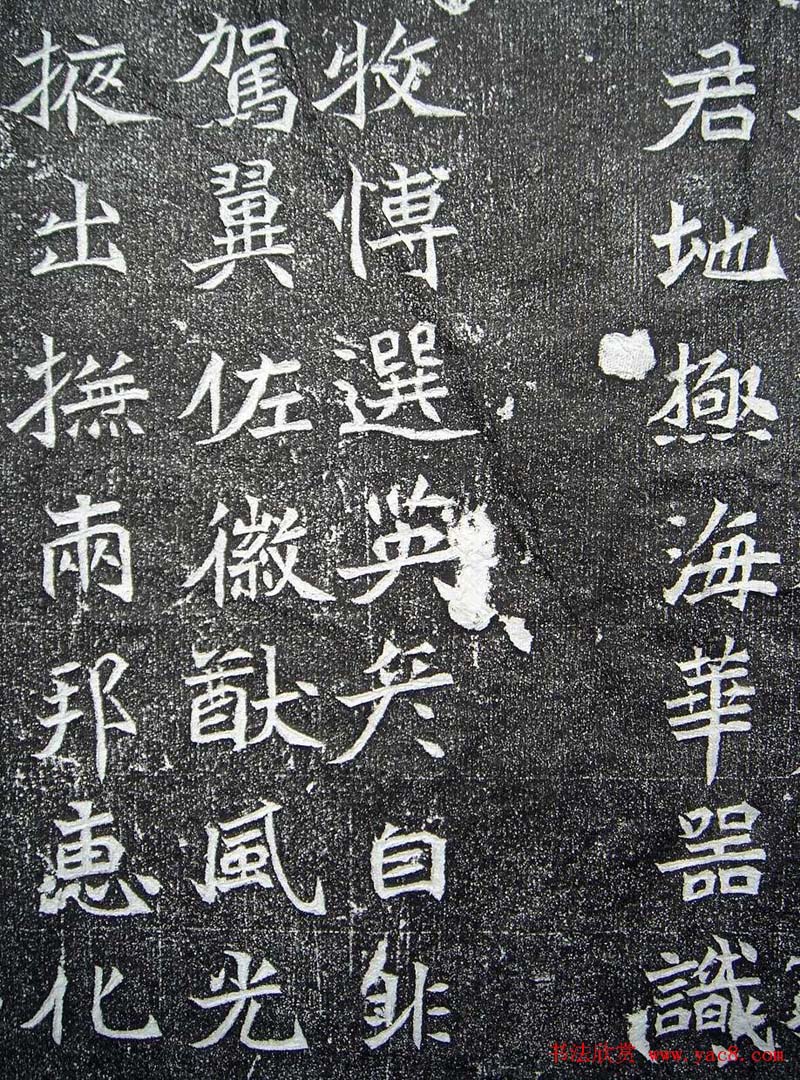 君地極海華器識
牧博選英矣自非
駕翼佐徽猷風光
掖出撫兩邦惠化
书法欣赏 www.yac8.com